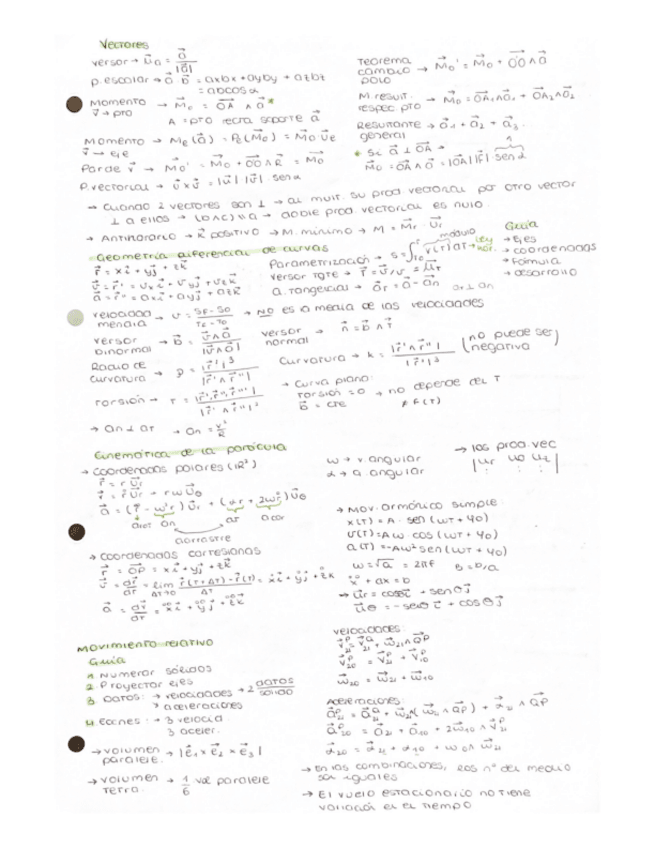 Vectores
versor → u⃗a = a⃗ / |a⃗|
p. escalar → a⃗ · b⃗ = axbx + ayby + azbz
= abcosα
Momento v⃗ → pto → M⃗c = O⃗A ∧ a⃗ *
A = pto recta soporte a⃗
Momento v⃗ → eje → Me(a⃗) = Pe(M⃗o) = M⃗o·u⃗e
Par de v⃗ → Mo' = Mo + O⃗O ∧ R⃗ = M⃗o
P. vectorial → u⃗ x v⃗ = |u⃗| |v⃗| · senα
Teorema cambio polo → M⃗o' = M⃗o + O⃗'O ∧ a⃗
M. result. respec. pto → M⃗o = O⃗A1 ∧ a⃗1 + O⃗A2 ∧ a⃗2
Resultante general → a⃗1 + a⃗2 + a⃗3
* Si a⃗ ⊥ O⃗A →
M⃗o = O⃗A ∧ a⃗ = |O⃗A| |F⃗| · senα
→ Cuando 2 vectores son ⊥ → al mult. su prod. vectorial por otro vector
⊥ a ellos → (b∧c) || a → doble prod. vectorial es nulo.
→ Antihorario → R⃗ positivo → M. mínimo → M = M⃗r · U⃗r
Geometría diferencial de curvas
r⃗ = xi⃗ + yj⃗ + zk⃗
v⃗ = r⃗' = vxi⃗ + vyj⃗ + vzk⃗
a⃗ = r⃗'' = axi⃗ + ayj⃗ + azk⃗
módulo
Parametrización → S = ∫ |v(t)| dt → ley hor.
versor tgte → T⃗ = v⃗/v = u⃗T
a. tangencial → a⃗T = a⃗ - a⃗n
aT ⊥ an
Guía
→ ejes
→ coordenadas
→ fórmula
→ desarrollo
velocidad media → v = (Sf - So) / (Tf - To) → NO es la media de las velocidades
versor binormal → b⃗ = v⃗∧a⃗ / |v⃗∧a⃗|
versor normal → n⃗ = b⃗ ∧ T⃗
Radio de curvatura → ρ = |r⃗'|³ / |r⃗' ∧ r⃗''|
Curvatura → k = |r⃗' ∧ r⃗''| / |r⃗'|³ (no puede ser negativa)
Torsión → τ = |r⃗', r⃗'', r⃗'''| / |r⃗' ∧ r⃗''|²
→ Curva plana:
Torsión = 0 → no depende del T
b⃗ = cte ≠ f(T)
→ an ⊥ aT → an = v²/R
Cinemática de la partícula
→ Coordenadas polares (R²)
r⃗ = r u⃗r
v⃗ = ṙ u⃗r + rω u⃗θ
a⃗ = (r̈ - ω²r) u⃗r + (αr + 2ωṙ) u⃗θ
an aT acor
aarrastre
w → v. angular
α → a. angular
→ los prod. vec
| ur uθ uz |
→ Coordenadas cartesianas
r⃗ = O⃗P = xi⃗ + yj⃗ + zk⃗
v⃗ = dr⃗/dt = lim ΔT→0 (r⃗(T+ΔT) - r⃗(T)) / ΔT = ẋi⃗ + ẏj⃗ + żk⃗
a⃗ = dv⃗/dt = ẍi⃗ + ÿj⃗ + z̈k⃗
→ Mov. armónico simple:
x(T) = A · sen(ωT + φ0)
v(T) = Aω cos(ωT + φ0)
a(T) = -Aω² sen(ωT + φ0)
ω = √a = 2πf B = b/a
ẍ + ax = b
→ u⃗r = cosθi⃗ + senθj⃗
u⃗θ = -senθi⃗ + cosθj⃗
Movimiento relativo
Guía
1 Numerar sólidos
2 Proyectar ejes
3 Datos: → velocidades → 2 datos/sólido
→ aceleraciones
4 Ecnes: → 3 veloci
→ 3 aceler.
→ volumen paralele. → |e⃗1 x e⃗2 x e⃗3|
→ volumen Tetra. → 1/6 vol paralele
velocidades:
v⃗P21 = v⃗Q21 + ω⃗21 ∧ Q⃗P
v⃗P20 = v⃗P21 + v⃗P10
ω⃗20 = ω⃗21 + ω⃗10
Aceleraciones:
a⃗P21 = a⃗Q21 + ω⃗21 ∧ (ω⃗21 ∧ Q⃗P) + α⃗21 ∧ Q⃗P
a⃗P20 = a⃗21 + a⃗10 + 2ω⃗10 ∧ v⃗P21
α⃗20 = α⃗21 + α⃗10 + ω⃗10 ∧ ω⃗21
→ En las combinaciones, los nº del medio
son iguales
→ El vuelo estacionario no tiene
variación en el tiempo